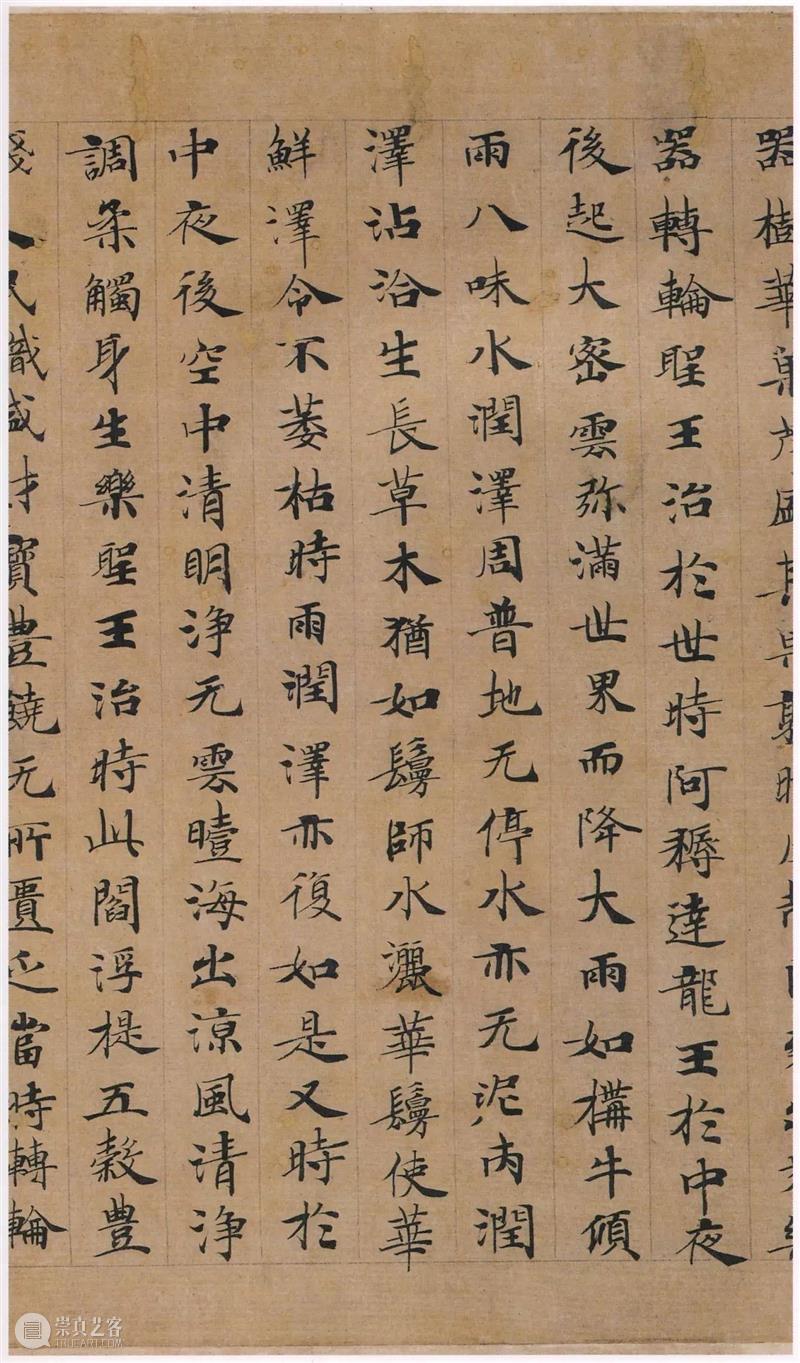 器樹華菓茂盛其菓熟時
器轉輪聖王治於世時阿耨達龍王於中夜
後起大密雲弥滿世界而降大雨如構牛傾
雨八味水潤澤周普地无停水亦无泥内潤
澤沾洽生長草木猶如鬘師水灑華鬘使華
鮮澤令不萎枯時雨潤澤亦復如是又時於
中夜後空中清明浄无雲曀海出涼風清浄
調柔觸身生樂聖王治時此閻浮提五穀豊
人民熾盛財寶豊饒无所匱乏當時轉輪
崇真艺客